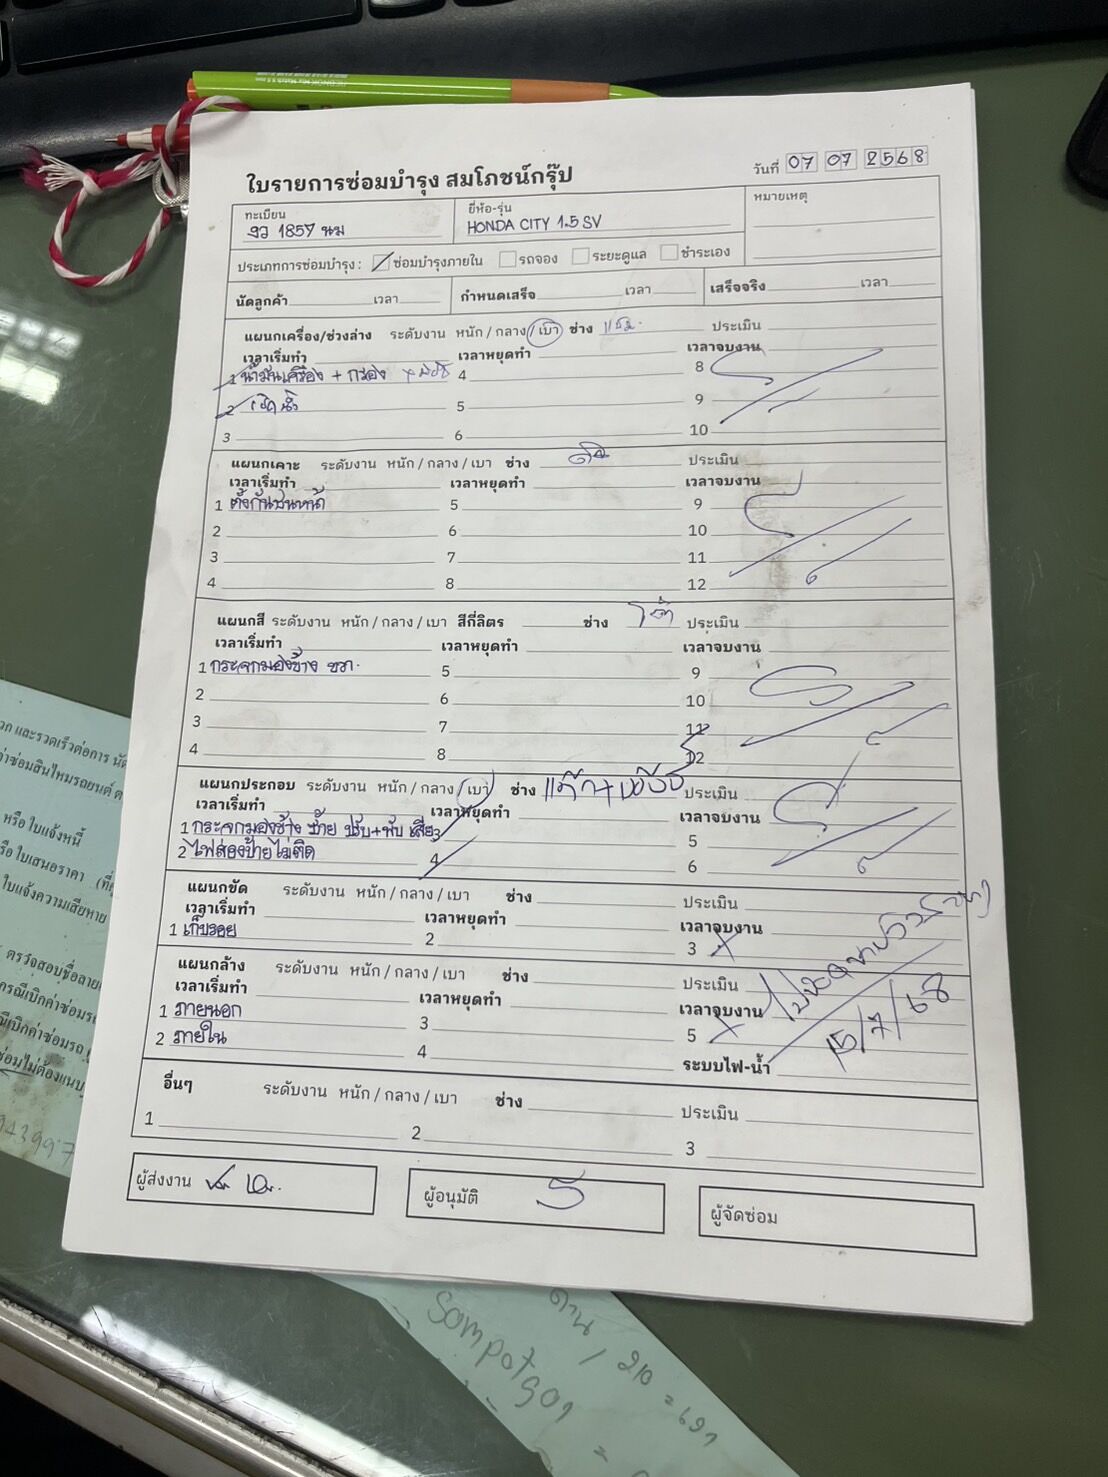 ใบรายการซ่อมบำรุง สมโภชน์กรุ๊ป
วันที่ 07 07 2568
ทะเบียน
1857 นม
ยี่ห้อ-รุ่น
HONDA CITY 1.5 SV
หมายเหตุ
ประเภทการซ่อมบำรุง : ซ่อมบำรุงภายใน รถจอง ระยะดูแล ชำระเอง
นัดลูกค้า เวลา กำหนดเสร็จ เวลา เสร็จจริง เวลา
แผนกเครื่อง/ช่วงล่าง ระดับงาน หนัก / กลาง / เบา ช่าง ประเมิน
เวลาเริ่มทำ เวลาหยุดทำ เวลาจบงาน
1 น้ำมันเครื่อง + กรอง 4 8
2 5 9
3 6 10
แผนกเคาะ ระดับงาน หนัก / กลาง / เบา ช่าง ประเมิน
เวลาเริ่มทำ เวลาหยุดทำ เวลาจบงาน
1 ตั้งกันชนหน้า 5 9
2 6 10
3 7 11
4 8 12
แผนกสี ระดับงาน หนัก / กลาง / เบา สีกี่ลิตร ช่าง ประเมิน
เวลาเริ่มทำ เวลาหยุดทำ เวลาจบงาน
1 กระจกมองข้าง ขวา 5 9
2 6 10
3 7 11
4 8 12
แผนกประกอบ ระดับงาน หนัก / กลาง / เบา ช่าง ประเมิน
เวลาเริ่มทำ เวลาหยุดทำ เวลาจบงาน
1 กระจกมองข้าง ซ้าย ปรับ+พับ เสีย 3 5
2 ไฟส่องป้ายไม่ติด 4 6
แผนกขัด ระดับงาน หนัก / กลาง / เบา ช่าง ประเมิน
เวลาเริ่มทำ เวลาหยุดทำ เวลาจบงาน
1 เก็บรอย 2 3
แผนกล้าง ระดับงาน หนัก / กลาง / เบา ช่าง ประเมิน
เวลาเริ่มทำ เวลาหยุดทำ เวลาจบงาน
1 ภายนอก 3 5
2 ภายใน 4 ระบบไฟ-น้ำ
15/7/68
อื่นๆ ระดับงาน หนัก / กลาง / เบา ช่าง ประเมิน
1 2 3
ผู้ส่งงาน
ผู้อนุมัติ
ผู้จัดซ่อม
และรวดเร็วต่อการ
ค่าซ่อมสินไหมรถยนต์
หรือใบแจ้งหนี้
หรือใบเสนอราคา
ใบแจ้งความเสียหาย
กรณีเบิกค่าซ่อมรถ
ซ่อมไม่ต้องแนบ
Sompotgor
210 = 691